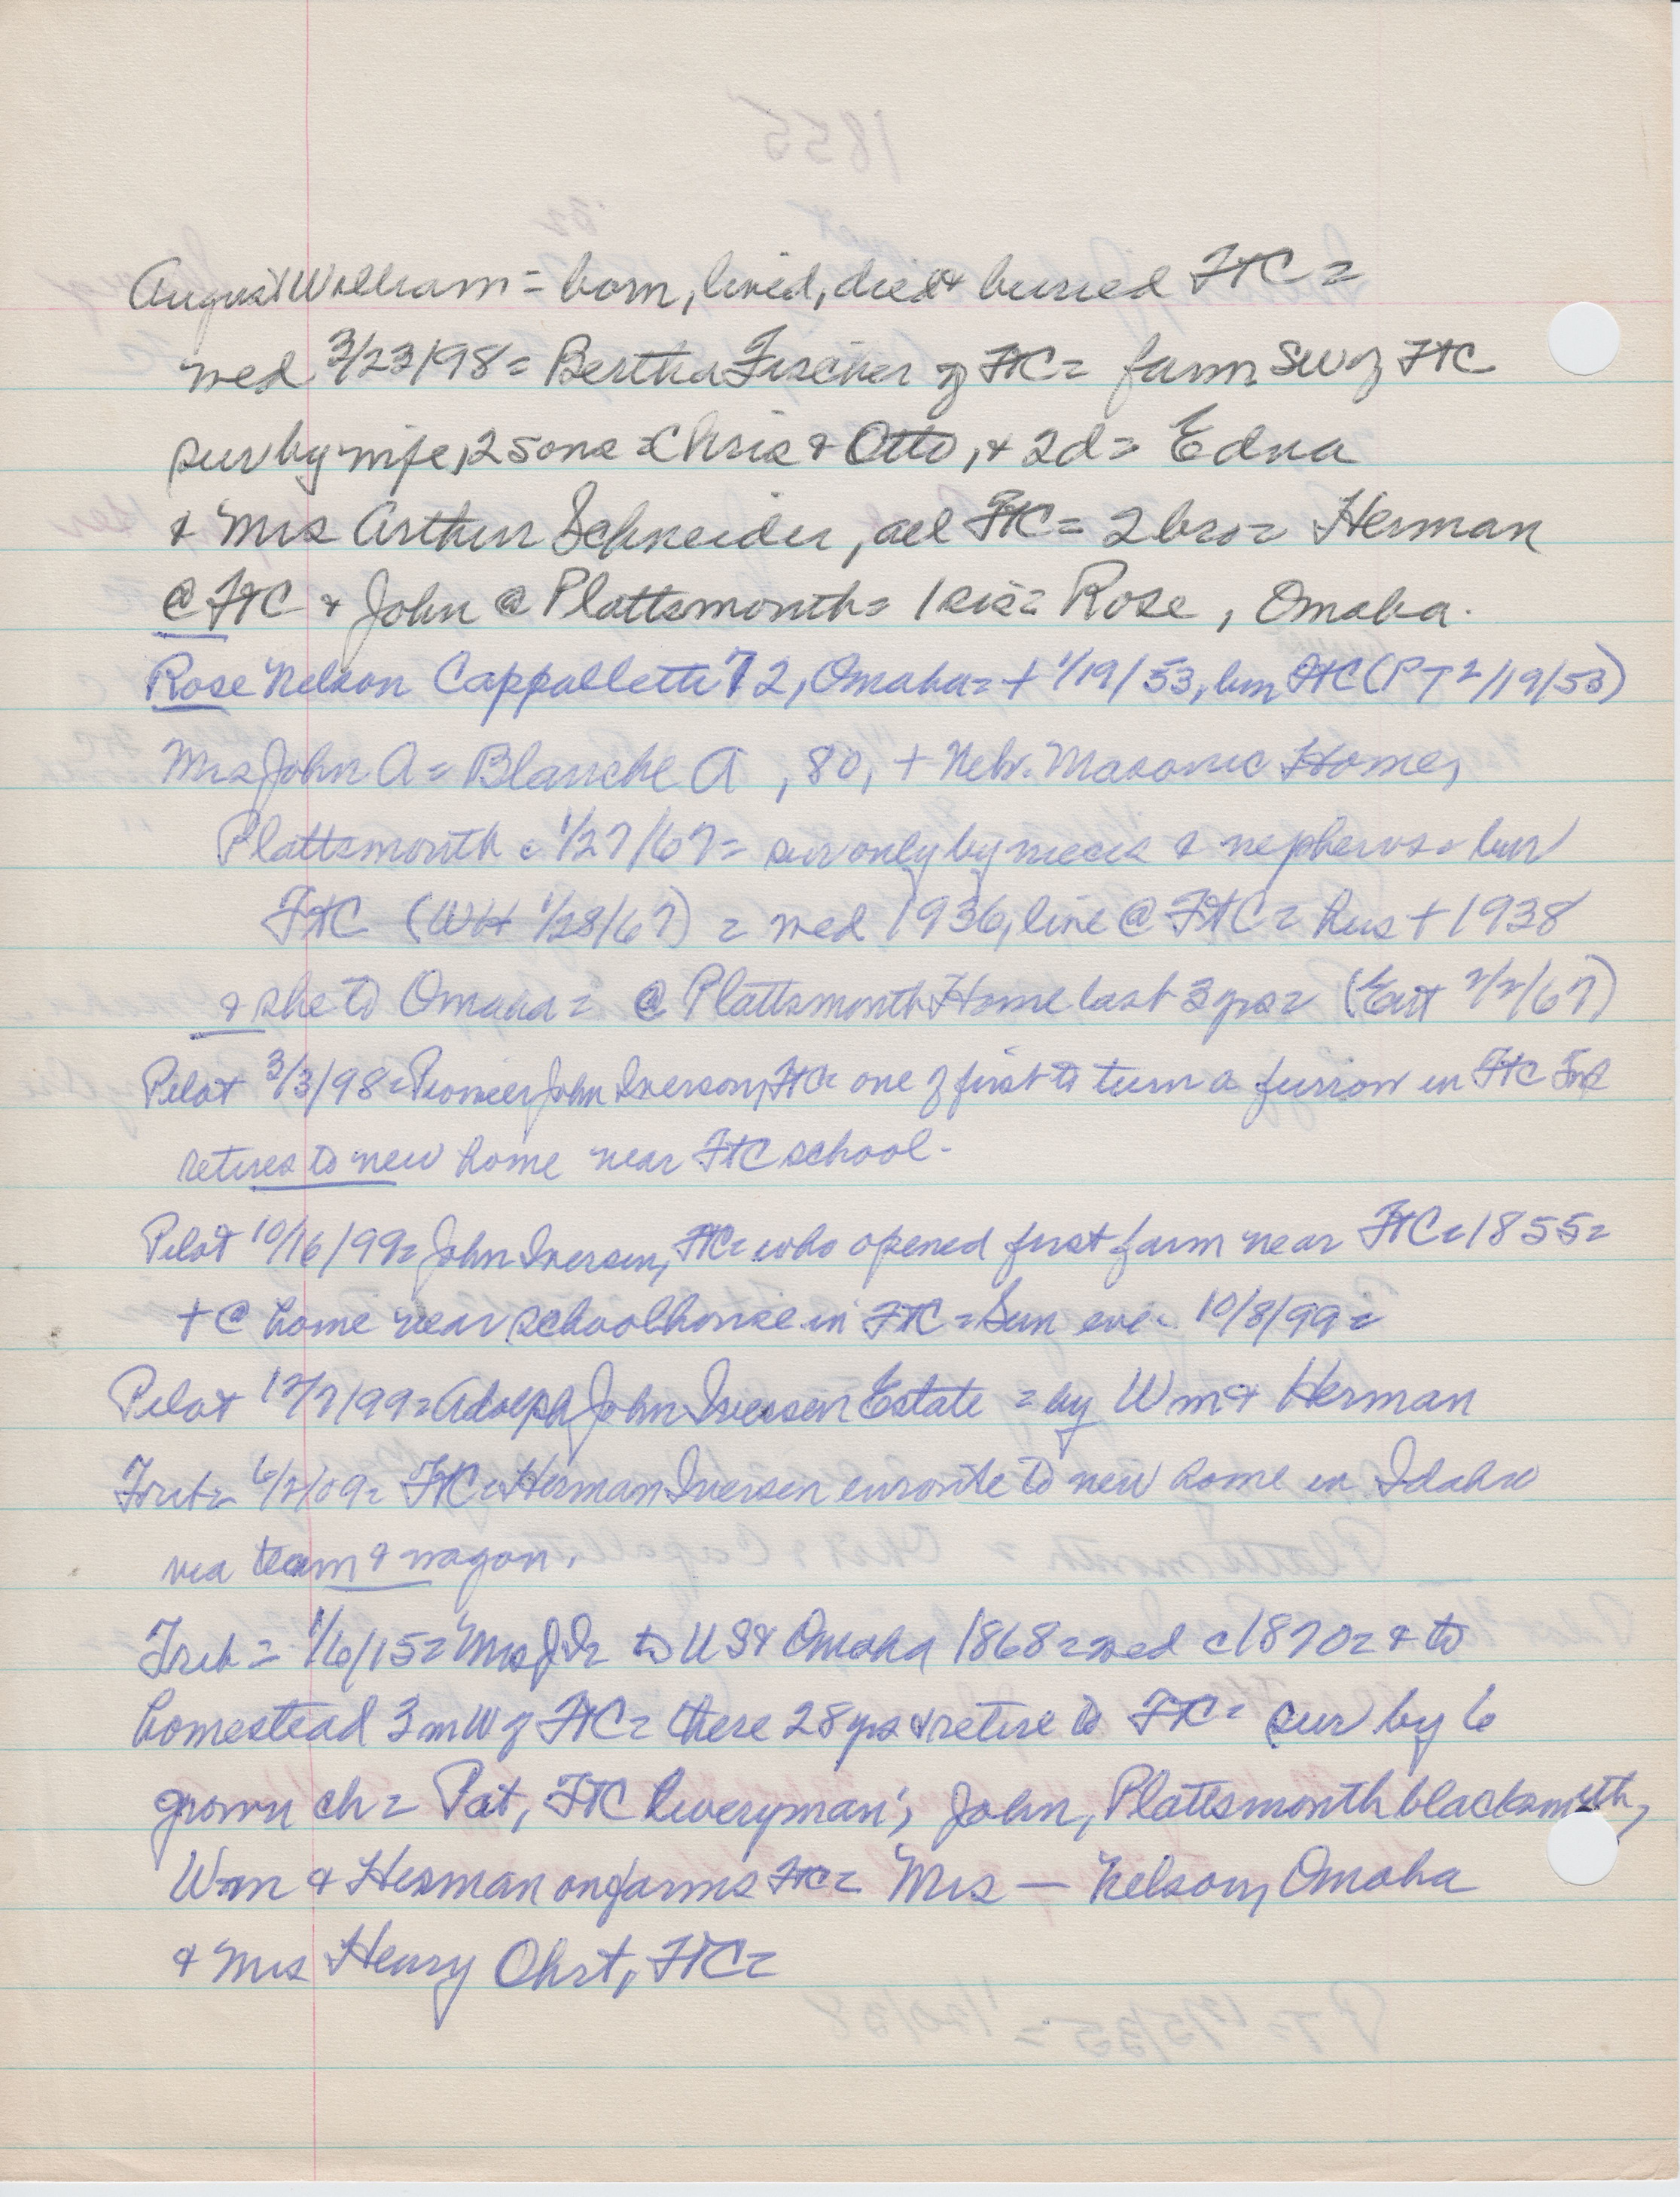 August William = born, lived, died & buried FtC =
wed 3/23/98 = Bertha Fischer of FtC = farm SW of FtC
sur by wife, 2 sons = Chris & Otto, & 2 d = Edna
& Mrs Arthur Schneider, all FtC = 2 bro = Herman
@ FtC & John @ Plattsmouth = 1 sis = Rose, Omaha.
Rose Nelson Cappalletti 72, Omaha = + 1/19/53, bur FtC (PT 2/19/53)
Mrs John A = Blanche A, 80, + Nebr. Masonic Home,
Plattsmouth c 1/27/67 = sur only by nieces & nephews = bur
FtC (WH 1/28/67) = wed 1936, live @ FtC = hus + 1938
& she to Omaha = @ Plattsmouth Home last 3 yrs = 2/2/67)
Pilot 3/3/98 = Pioneer John Iverson, FtC = one of first to turn a furrow in FtC
retires to new home near FtC school -
Pilot 10/16/99 = John Iversen, FtC = who opened first farm near FtC = 1855 =
+ @ home near schoolhouse in FtC = Sun eve - 10/8/99 =
Pilot 12/7/99 = Adolph John Iversen Estate = by Wm & Herman
Trib = 6/2/09 = FtC = Herman Iversen enroute to new home in Idaho
via team & wagon.
Trib = 1/6/15 = Mrs J I = to US & Omaha 1868 = wed c1870 = & to
homestead 3 m W of FtC = there 28 yrs & retire to FtC = sur by 6
grown ch = Pat, FtC liveryman; John, Plattsmouth blacksmith,
Wm & Herman on farms FtC = Mrs — Nelson, Omaha
& Mrs Henry Ohrt, FtC =